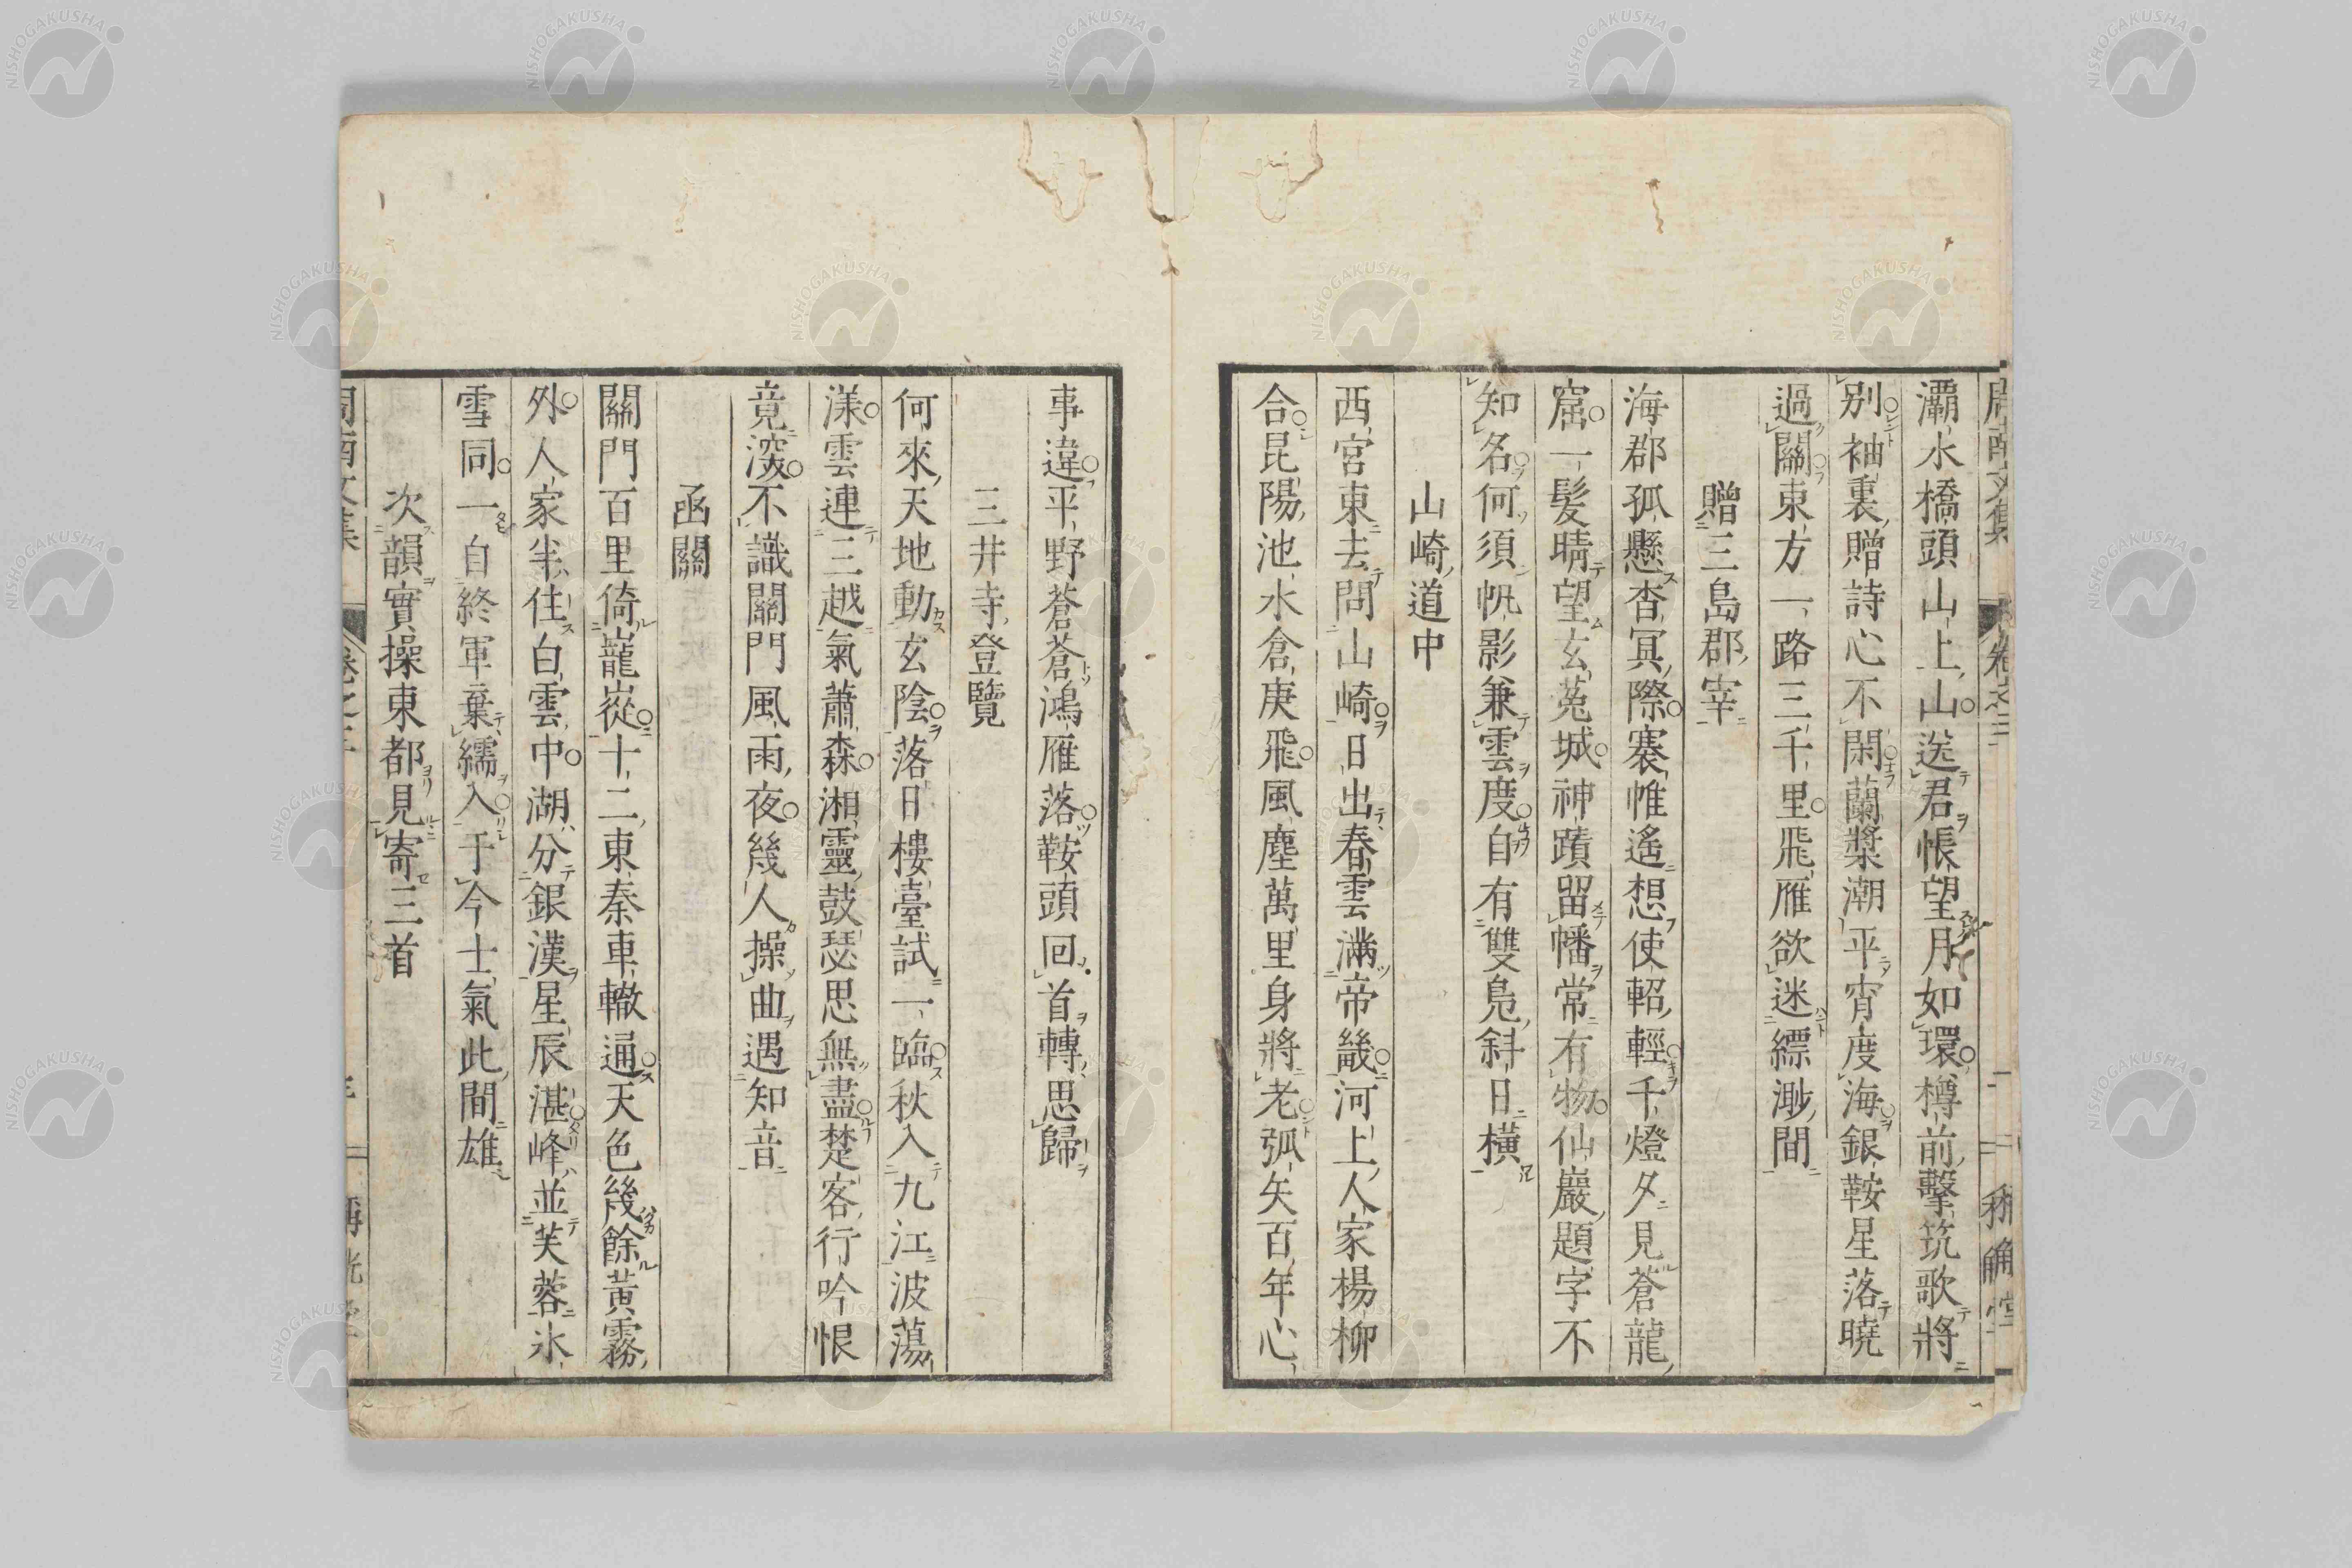 灞水橋頭山上山送君帳望月如環樽前擊筑歌將
別袖裏贈詩心不閑蘭槳潮平宵度海銀鞍星落曉
過關東方一路三千里飛雁欲迷縹渺間
贈三島郡宰
海郡孤懸杳冥際褰帷遙想使軺輕千燈夕見蒼龍
窟一髮晴望玄菟城神蹟留幡常有物仙巖題字不
知名何須帆影兼雲度自有雙鳧斜日橫
山崎道中
西宮東去問山崎日出春雲滿帝畿河上人家楊柳
合昆陽池水倉庚飛風塵萬里身將老弧矢百年心
事違平野蒼蒼鴻雁落鞍頭回首轉思歸
三井寺登覽
何來天地動玄陰落日樓臺試一臨秋入九江波蕩
漾雲連三越氣蕭森湘靈鼓瑟思無盡楚客行吟恨
竟深不識關門風雨夜幾人操曲遇知音
函關
關門百里倚巃嵸十二東秦車轍通天色幾餘黃霧
外人家半住白雲中湖分銀漢星辰湛峰並芙蓉氷
雪同一自終軍棄繻入于今士氣此間雄
次韻實操東都見寄三首
周南文集
卷之三
NISHOGAKUSHA